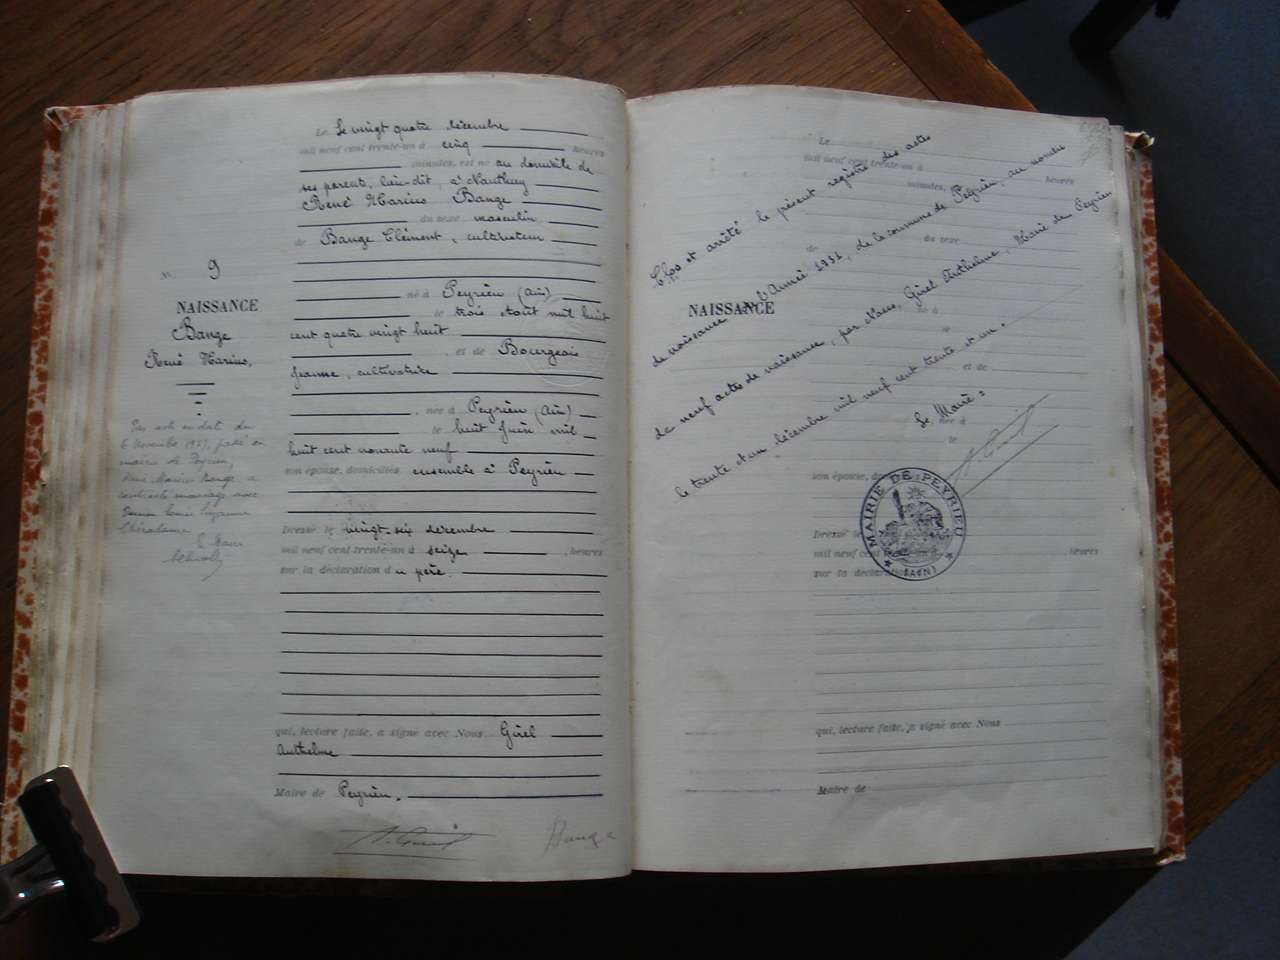 N° 9
NAISSANCE
Bange
René Marius,
Par acte en date du
6 Novembre 1957, passé en
mairie de Peyrieu,
René Marius Bange a
contracté mariage avec
Louise Suzanne
le Maire
Le vingt quatre décembre
mil neuf cent trente-un à cinq heures
minutes, est né au domicile de
ses parents, lieu-dit, à Nanthuy
René Marius Bange
du sexe masculin
de Bange Clément, cultivateur
né à Peyrieu (Ain)
le trois Août mil huit
cent quatre vingt huit
, et de Bourgeois
Jeanne, cultivatrice
, née à Peyrieu (Ain)
le huit Juin mil
huit cent nonante neuf
son épouse, domiciliés ensemble à Peyrieu
Dressé le vingt-six décembre
mil neuf cent trente-un à seize , heures
sur la déclaration du père.
qui, lecture faite, a signé avec Nous Girel
Anthelme
Maire de Peyrieu.
A. Girel
Bange
NAISSANCE
Le
mil neuf cent trente-un à heures
minutes,
de
du sexe
né à
le
et de
née à
le
son épouse, do
Dressé le
mil neuf cent trente-un à , heures
sur la déclaration
qui, lecture faite, a signé avec Nous
Maire de
Clos et arrêté le présent registre des actes
de naissance de l'Année 1931, de la commune de Peyrieu, au nombre
de neuf actes de naissance, par Nous, Girel Anthelme, Maire de Peyrieu
le trente et un décembre mil neuf cent trente et un.
Le Maire:
MAIRIE DE PEYRIEU
(AIN)